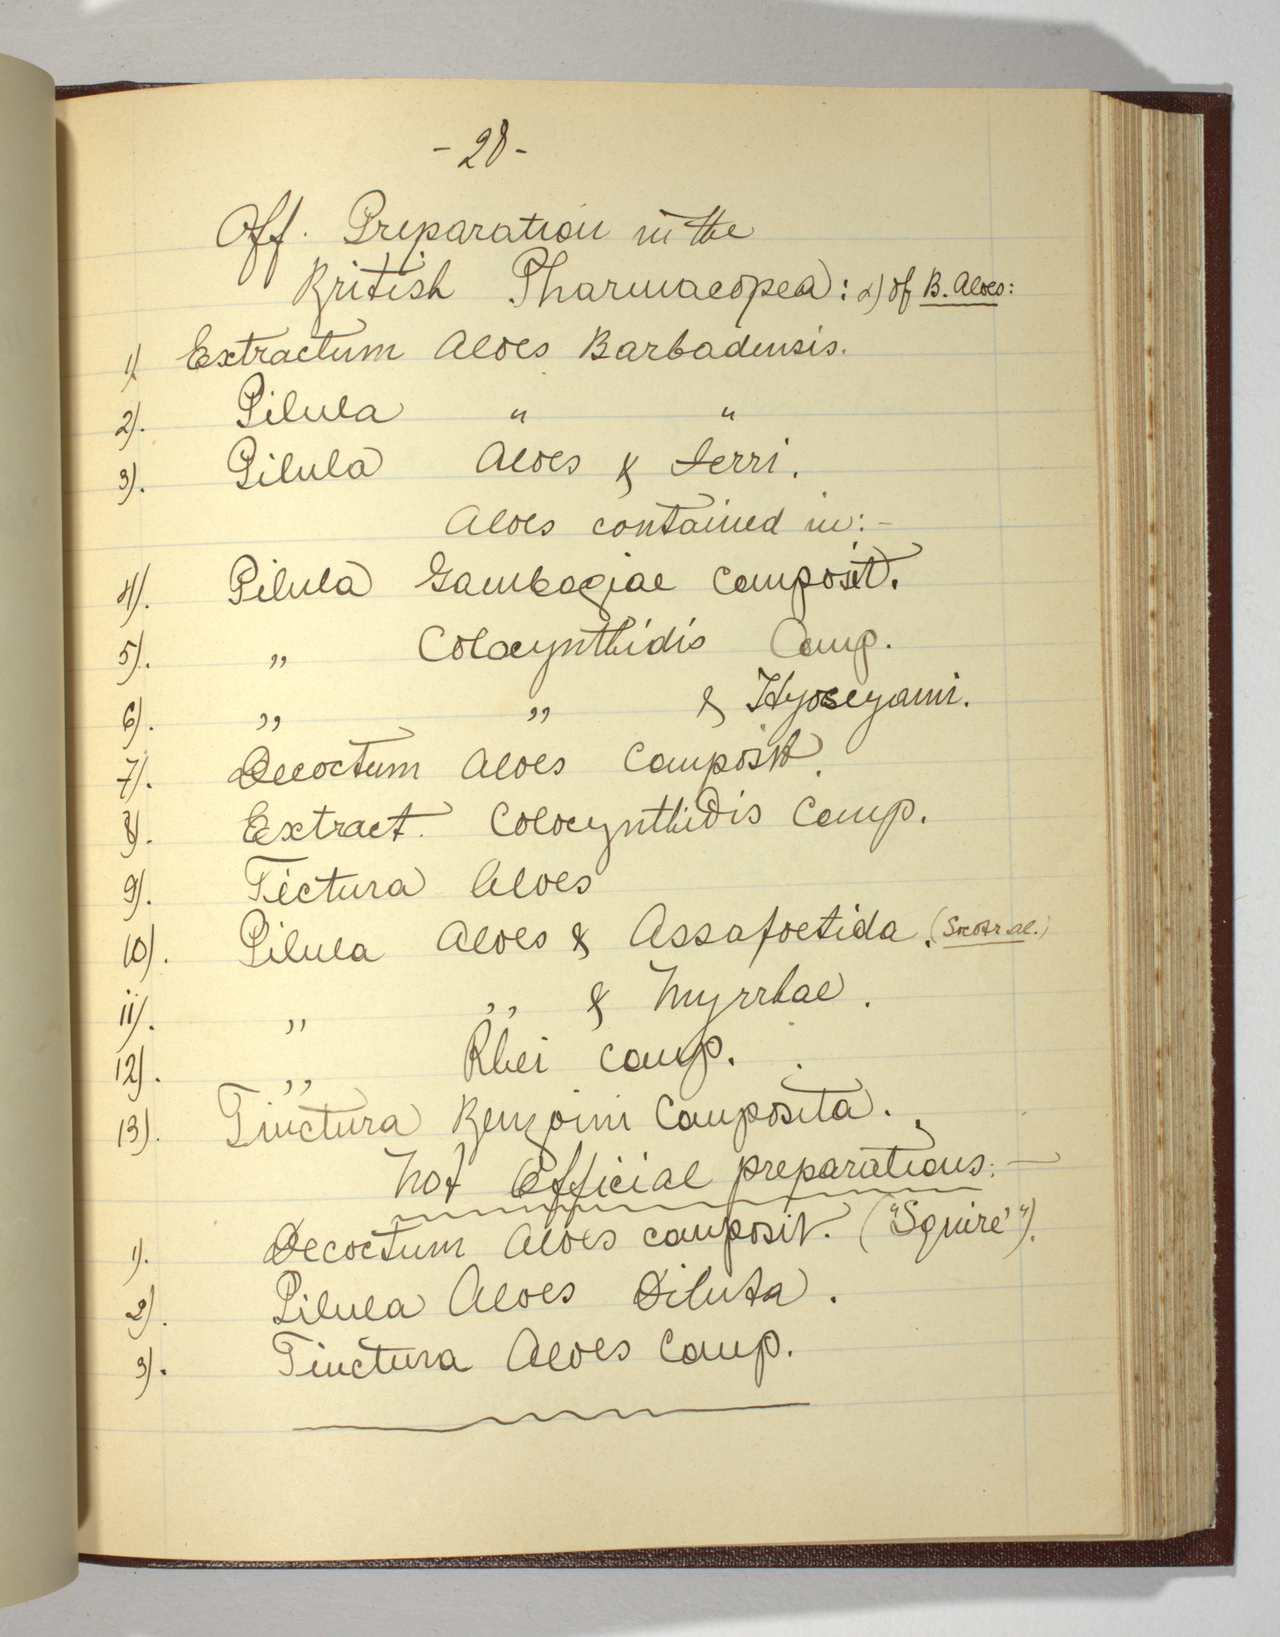 - 28 -
Off. Preparation in the
British Pharmacopea: α) of B. Aloes:
1) Extractum Aloes Barbadensis.
2). Pilula " "
3). Pilula Aloes & Ferri.
Aloes contained in:-
4). Pilula Gambogiae Composit.
5). " Colocynthidis Comp.
6). " " & Hyoscyami.
7). Decoctum Aloes Composit.
8). Extract. Colocynthidis Comp.
9). Tictura Aloes
10). Pilula Aloes & Assafoetida. (Socotr. al.)
11). " " & Myrrhae.
12). " Rhei comp.
13). Tinctura Benzoini Composita.
Not Official preparations:—
1). Decoctum Aloes composit. ("Squire'").
2). Pilula Aloes Diluta.
3). Tinctura Aloes Comp.